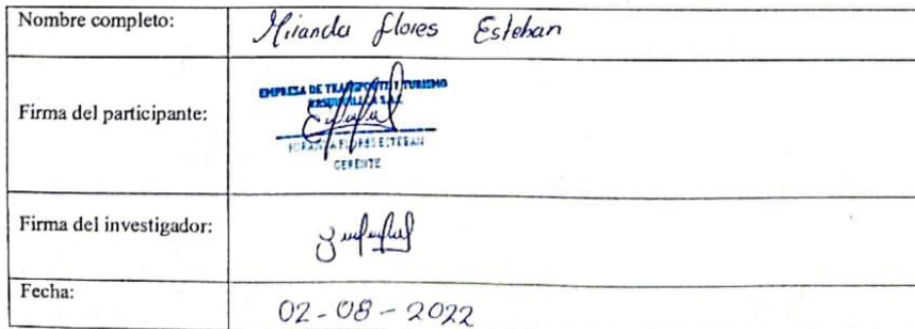 Nombre completo:
Miranda Flores Esteban
Firma del participante:
EMPRESA DE TRANSPORTE Y TURISMO
S.A.C
MIRANDA FLORES ESTEBAN
GERENTE
Firma del investigador:
Fecha:
02-08-2022